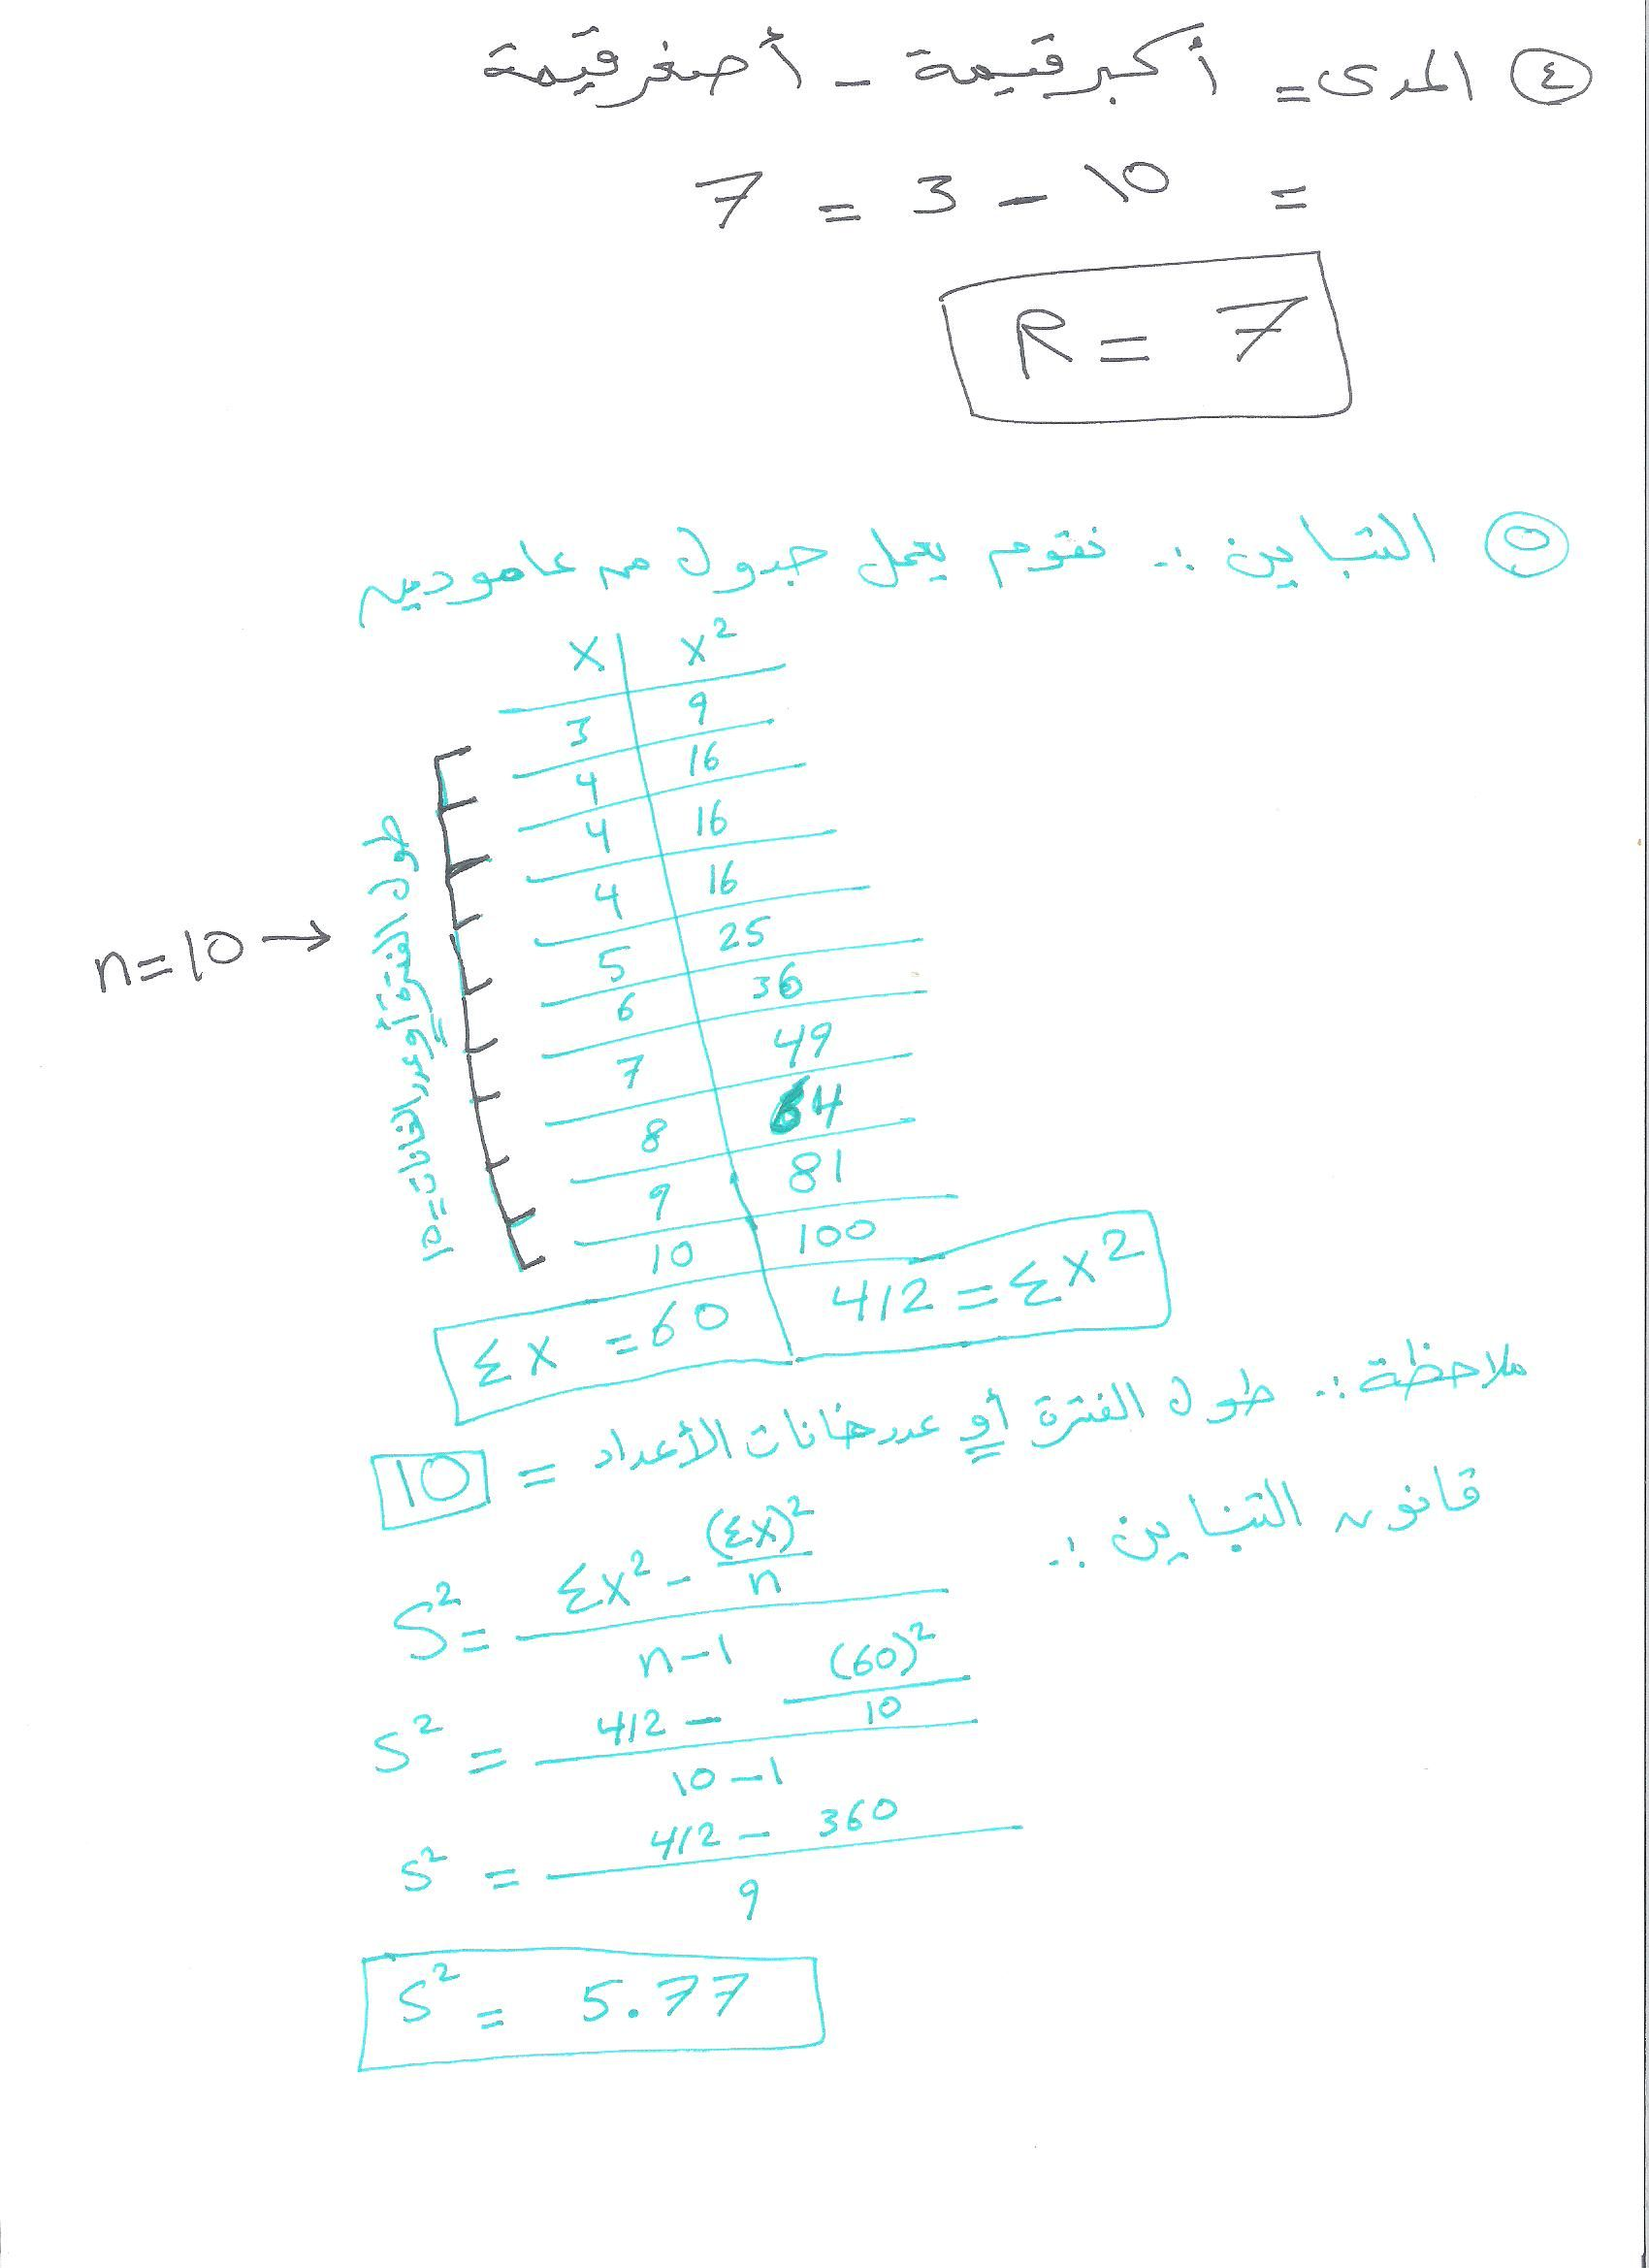 ٤ المدى = أكبر قيمة - أصغر قيمة
= 10 - 3 = 7
R = 7
٥ التباين :. نقوم بعمل جدول من عامودين
x x²
3 9
4 16
4 16
4 16
5 25
6 36
7 49
8 64
9 81
10 100
Σx = 60 412 = Σx²
n=10 →
طول الفترة أو عدد الخانات = 10
ملاحظة :. طول الفترة أو عدد خانات الأعداد = 10
قانون التباين :.
S² = Σx² - (Σx)² / n
n-1
S² = 412 - (60)² / 10
10-1
S² = 412 - 360
9
S² = 5.77